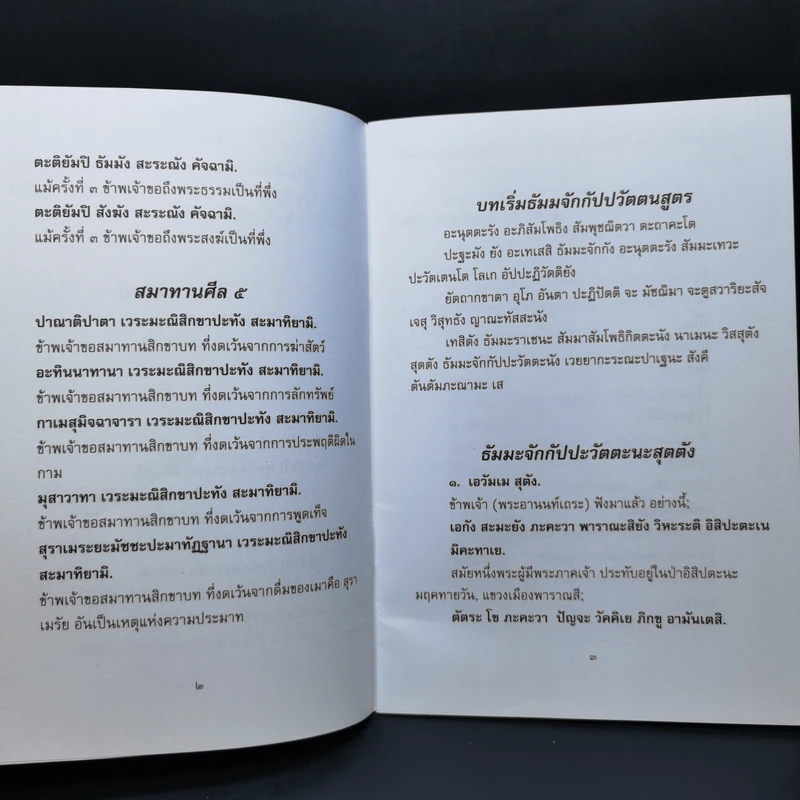 ตะติยัมปิ ธัมมัง สะระณัง คัจฉามิ.
แม้ครั้งที่ ๓ ข้าพเจ้าขอถึงพระธรรมเป็นที่พึ่ง
ตะติยัมปิ สังฆัง สะระณัง คัจฉามิ.
แม้ครั้งที่ ๓ ข้าพเจ้าขอถึงพระสงฆ์เป็นที่พึ่ง
สมาทานศีล ๕
ปาณาติปาตา เวระมะณิสิกขาปะทัง สะมาทิยามิ.
ข้าพเจ้าขอสมาทานสิกขาบท ที่งดเว้นจากการฆ่าสัตว์
อะทินนาทานา เวระมะณิสิกขาปะทัง สะมาทิยามิ.
ข้าพเจ้าขอสมาทานสิกขาบท ที่งดเว้นจากการลักทรัพย์
กาเมสุมิจฉาจารา เวระมะณิสิกขาปะทัง สะมาทิยามิ.
ข้าพเจ้าขอสมาทานสิกขาบท ที่งดเว้นจากการประพฤติผิดใน
กาม
มุสาวาทา เวระมะณิสิกขาปะทัง สะมาทิยามิ.
ข้าพเจ้าขอสมาทานสิกขาบท ที่งดเว้นจากการพูดเท็จ
สุราเมระยะมัชชะปะมาทัฏฐานา เวระมะณิสิกขาปะทัง
สะมาทิยามิ.
ข้าพเจ้าขอสมาทานสิกขาบท ที่งดเว้นจากดื่มของเมาคือ สุรา
เมรัย อันเป็นเหตุแห่งความประมาท
๒
บทเริ่มธัมมจักกัปปวัตตนสูตร
อะนุตตะรัง อะภิสัมโพธิง สัมพุชฌิตวา ตะถาคะโต
ปะฐะมัง ยัง อะเทเสสิ ธัมมะจักกัง อะนุตตะรัง สัมมะเทวะ
ปะวัตเตนโต โลเก อัปปะฏิวัตติยัง
ยัตถากขาตา อุโภ อันตา ปะฏิปัตติ จะ มัชฌิมา จะตูสวาริยะสัจ
เจสุ วิสุทธัง ญาณะทัสสะนัง
เทสิตัง ธัมมะราเชนะ สัมมาสัมโพธิกิตตะนัง นาเมนะ วิสสุตัง
สุตตัง ธัมมะจักกัปปะวัตตะนัง เวยยากะระณะปาเฐนะ สังคี
ตันตัมภะณามะ เส
ธัมมะจักกัปปะวัตตะนะสุตตัง
๑. เอวัมเม สุตัง.
ข้าพเจ้า (พระอานนท์เถระ) ฟังมาแล้ว อย่างนี้;
เอกัง สะมะยัง ภะคะวา พาราณะสิยัง วิหะระติ อิสิปะตะเน
มิคะทาเย.
สมัยหนึ่งพระผู้มีพระภาคเจ้า ประทับอยู่ในป่าอิสิปตะนะ
มฤคทายวัน, แขวงเมืองพาราณสี;
ตัตระ โข ภะคะวา ปัญจะ วัคคิเย ภิกขู อามันเตสิ.
๓